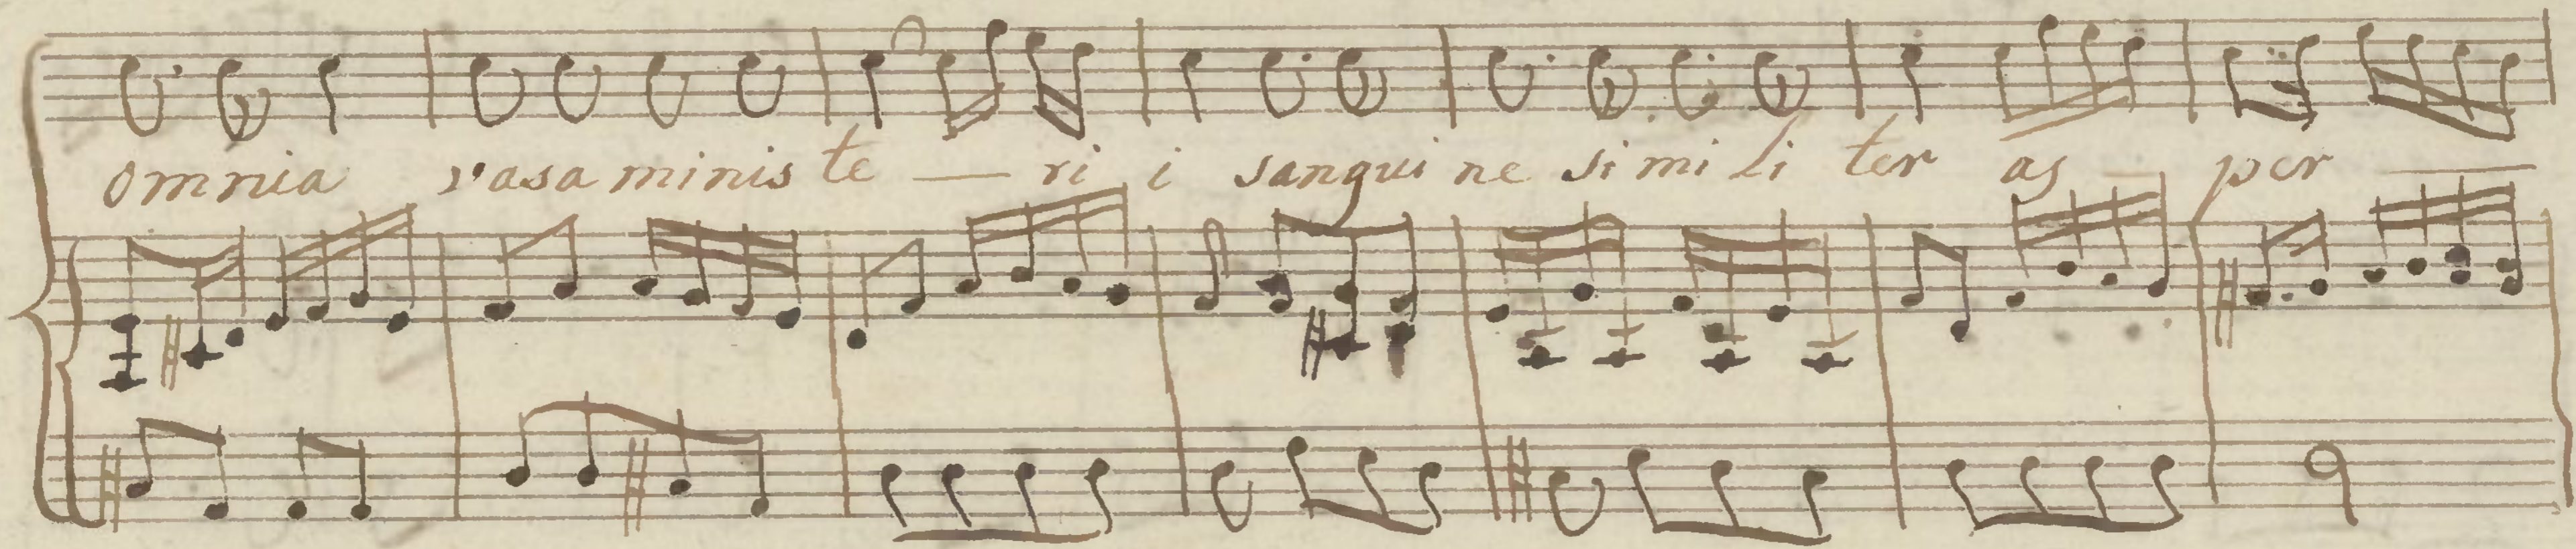 omnia vasa minis te — ri i sangui ne si mi li ter as — per —